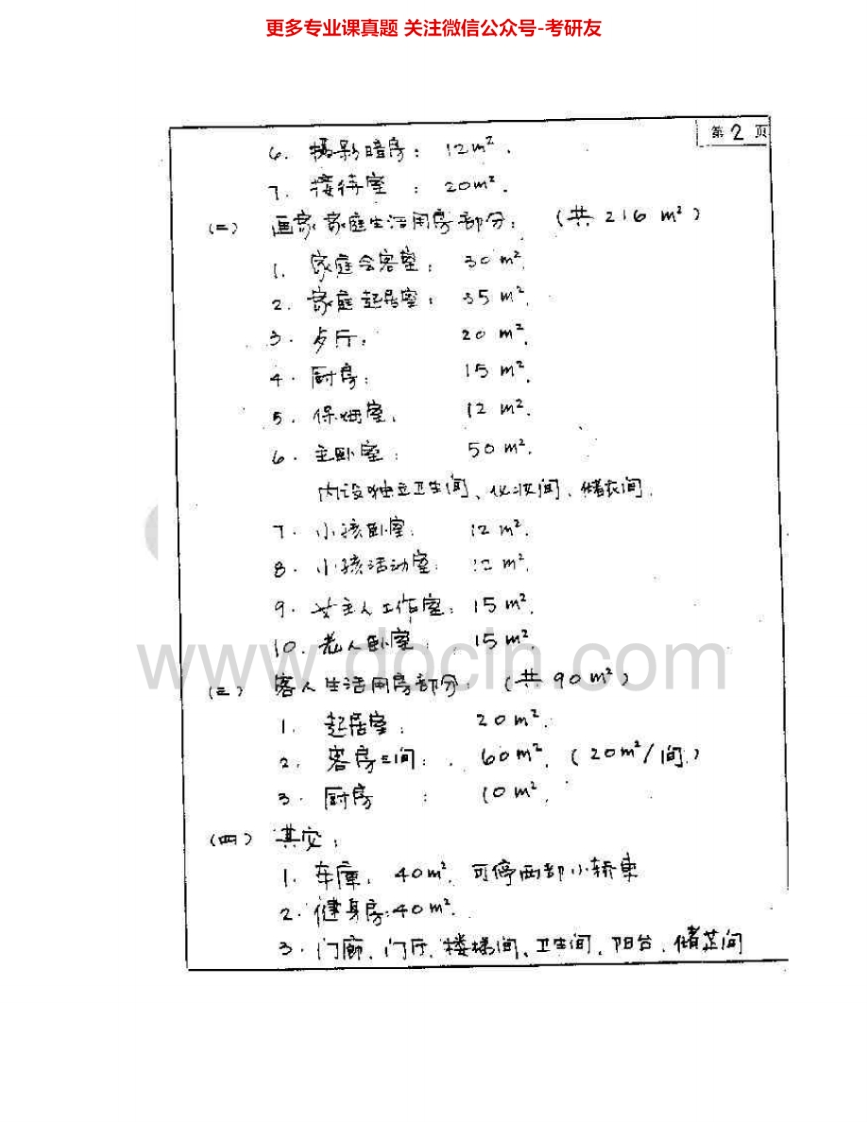 更多专业课真题 关注微信公众号-考研友
第2页
6. 摄影暗房：12m².
7. 接待室：20m².
(二) 画家家庭生活用房部分：(共216 m²)
1. 家庭会客室：30 m².
2. 家庭起居室：35 m².
3. 歺厅：20 m².
4. 厨房：15 m².
5. 保姆室. 12 m².
6. 主卧室：50 m².
内设独立卫生间、化妆间、储衣间.
7. 小孩卧室. 12 m².
8. 小孩活动室. 12 m².
9. 女主人工作室：15 m².
10. 老人卧室：15 m².
www.docin.com
(三) 客人生活用房部分：(共90 m²)
1. 起居室：20 m².
2. 客房三间：60 m². (20m²/间.)
3. 厨房：10 m².
(四) 其它：
1. 车库. 40m². 可停两部小轿車
2. 健身房：40m².
3. 门廊、门厅、楼梯间、卫生间、阳台、储芷间